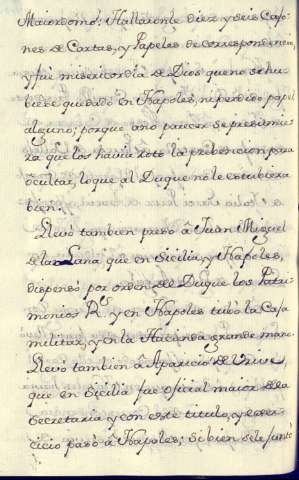 Maiordomo; Hallaronse diez y seis Cajo-
nes de Cartas, y Papeles de correspondencia,
y fue misericordia de Dios que no se hu-
biese quedado en Napoles, ni perdido papel
alguno; porque a no parecer se presumie-
ra que los havia roto la prebencion para
ocultar, lo que al Duque no le estubiera
bien.
Llevó tambien preso â Juan Miguel
de la Lana que en Sicilia, y Napoles,
dispensó por orden del Duque los Patri-
monios Rs. y en Napoles tubo la Caja
militar, y en la Hacienda grande mano
Llevó tambien â Aparicio de Urive,
que en Sicilia fue oficial maior de la
Secretaria y con este titulo, y exer-
cicio pasó â Napoles; si bien se le juntó